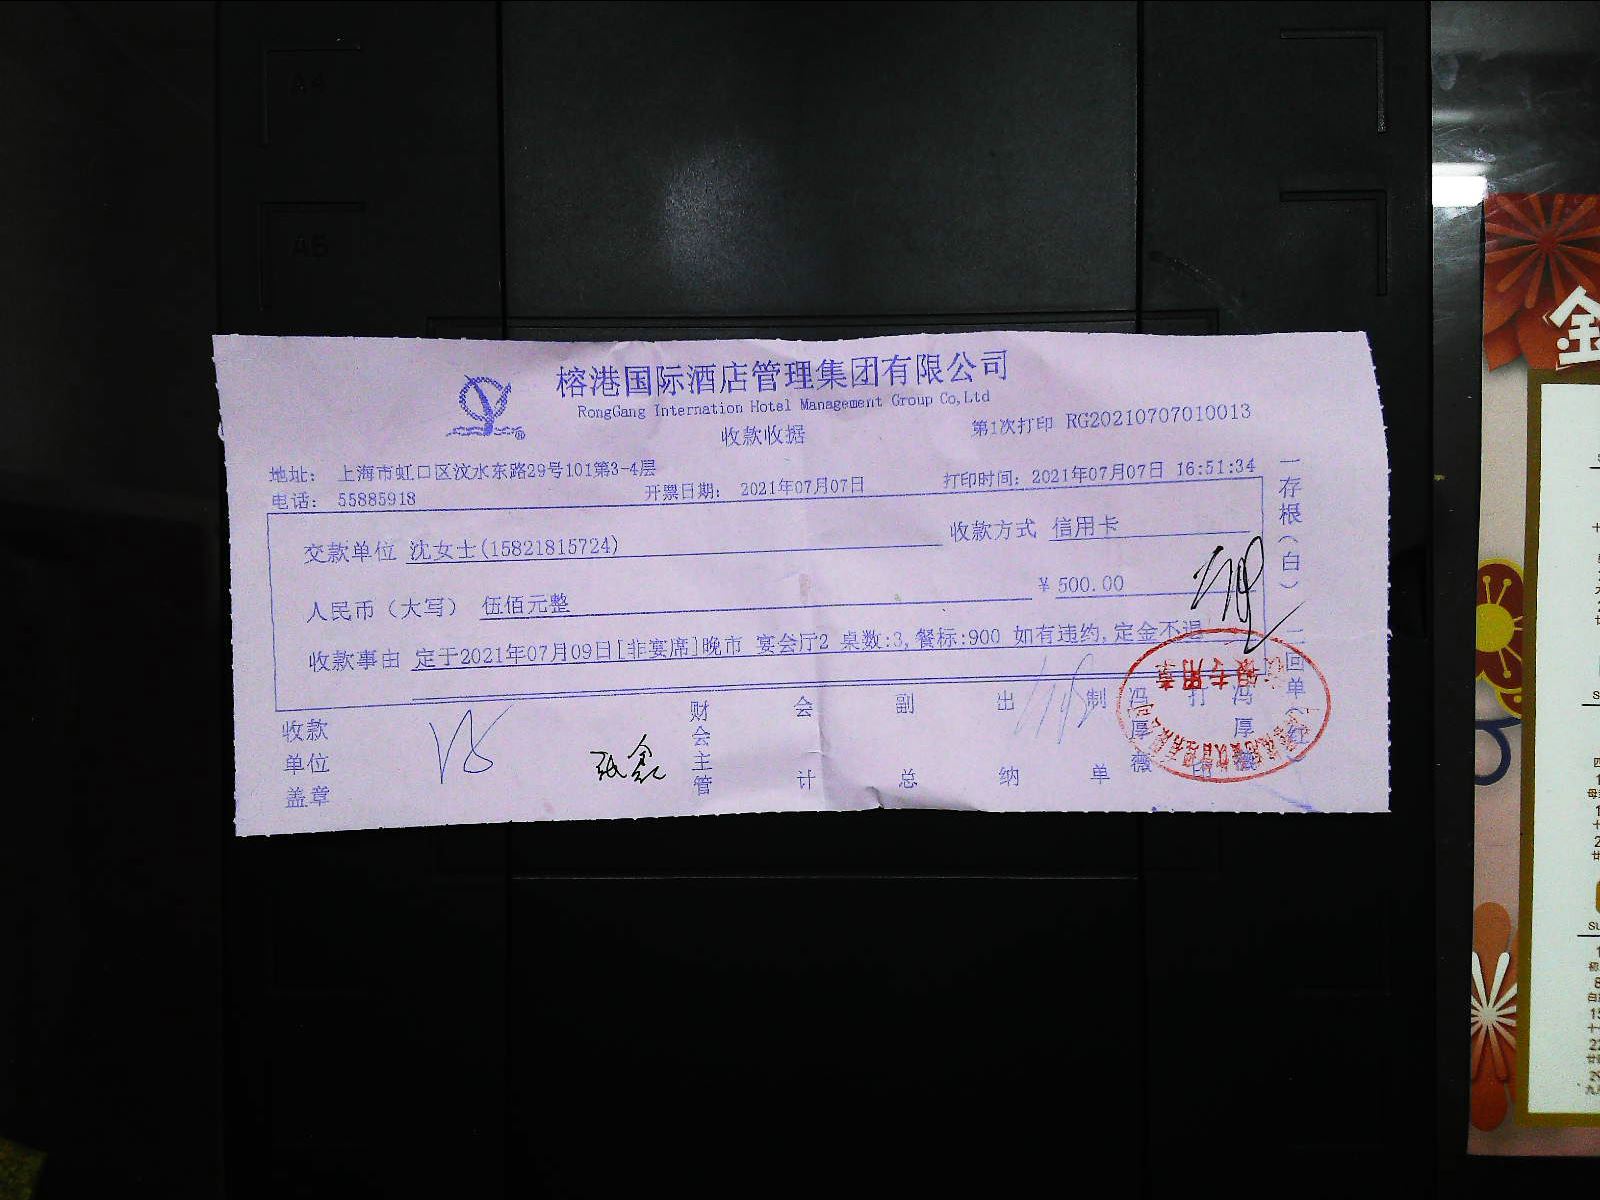 A4
A5
榕港国际酒店管理集团有限公司
RongGang Internation Hotel Management Group Co,Ltd
收款收据
第1次打印 RG20210707010013
地址： 上海市虹口区汶水东路29号101第3-4层
电话： 55885918
开票日期： 2021年07月07日
打印时间：2021年07月07日 16:51:34
交款单位 沈女士(15821815724)
收款方式 信用卡
人民币（大写） 伍佰元整
¥ 500.00
收款事由 定于2021年07月09日[非宴席]晚市 宴会厅2 桌数:3,餐标:900 如有违约,定金不退
收款单位盖章
张鑫
财会主管
会计
副总
出纳
制单
冯厚薇
打印
冯厚薇
一存根（白）
二回单（红）
专用章
金